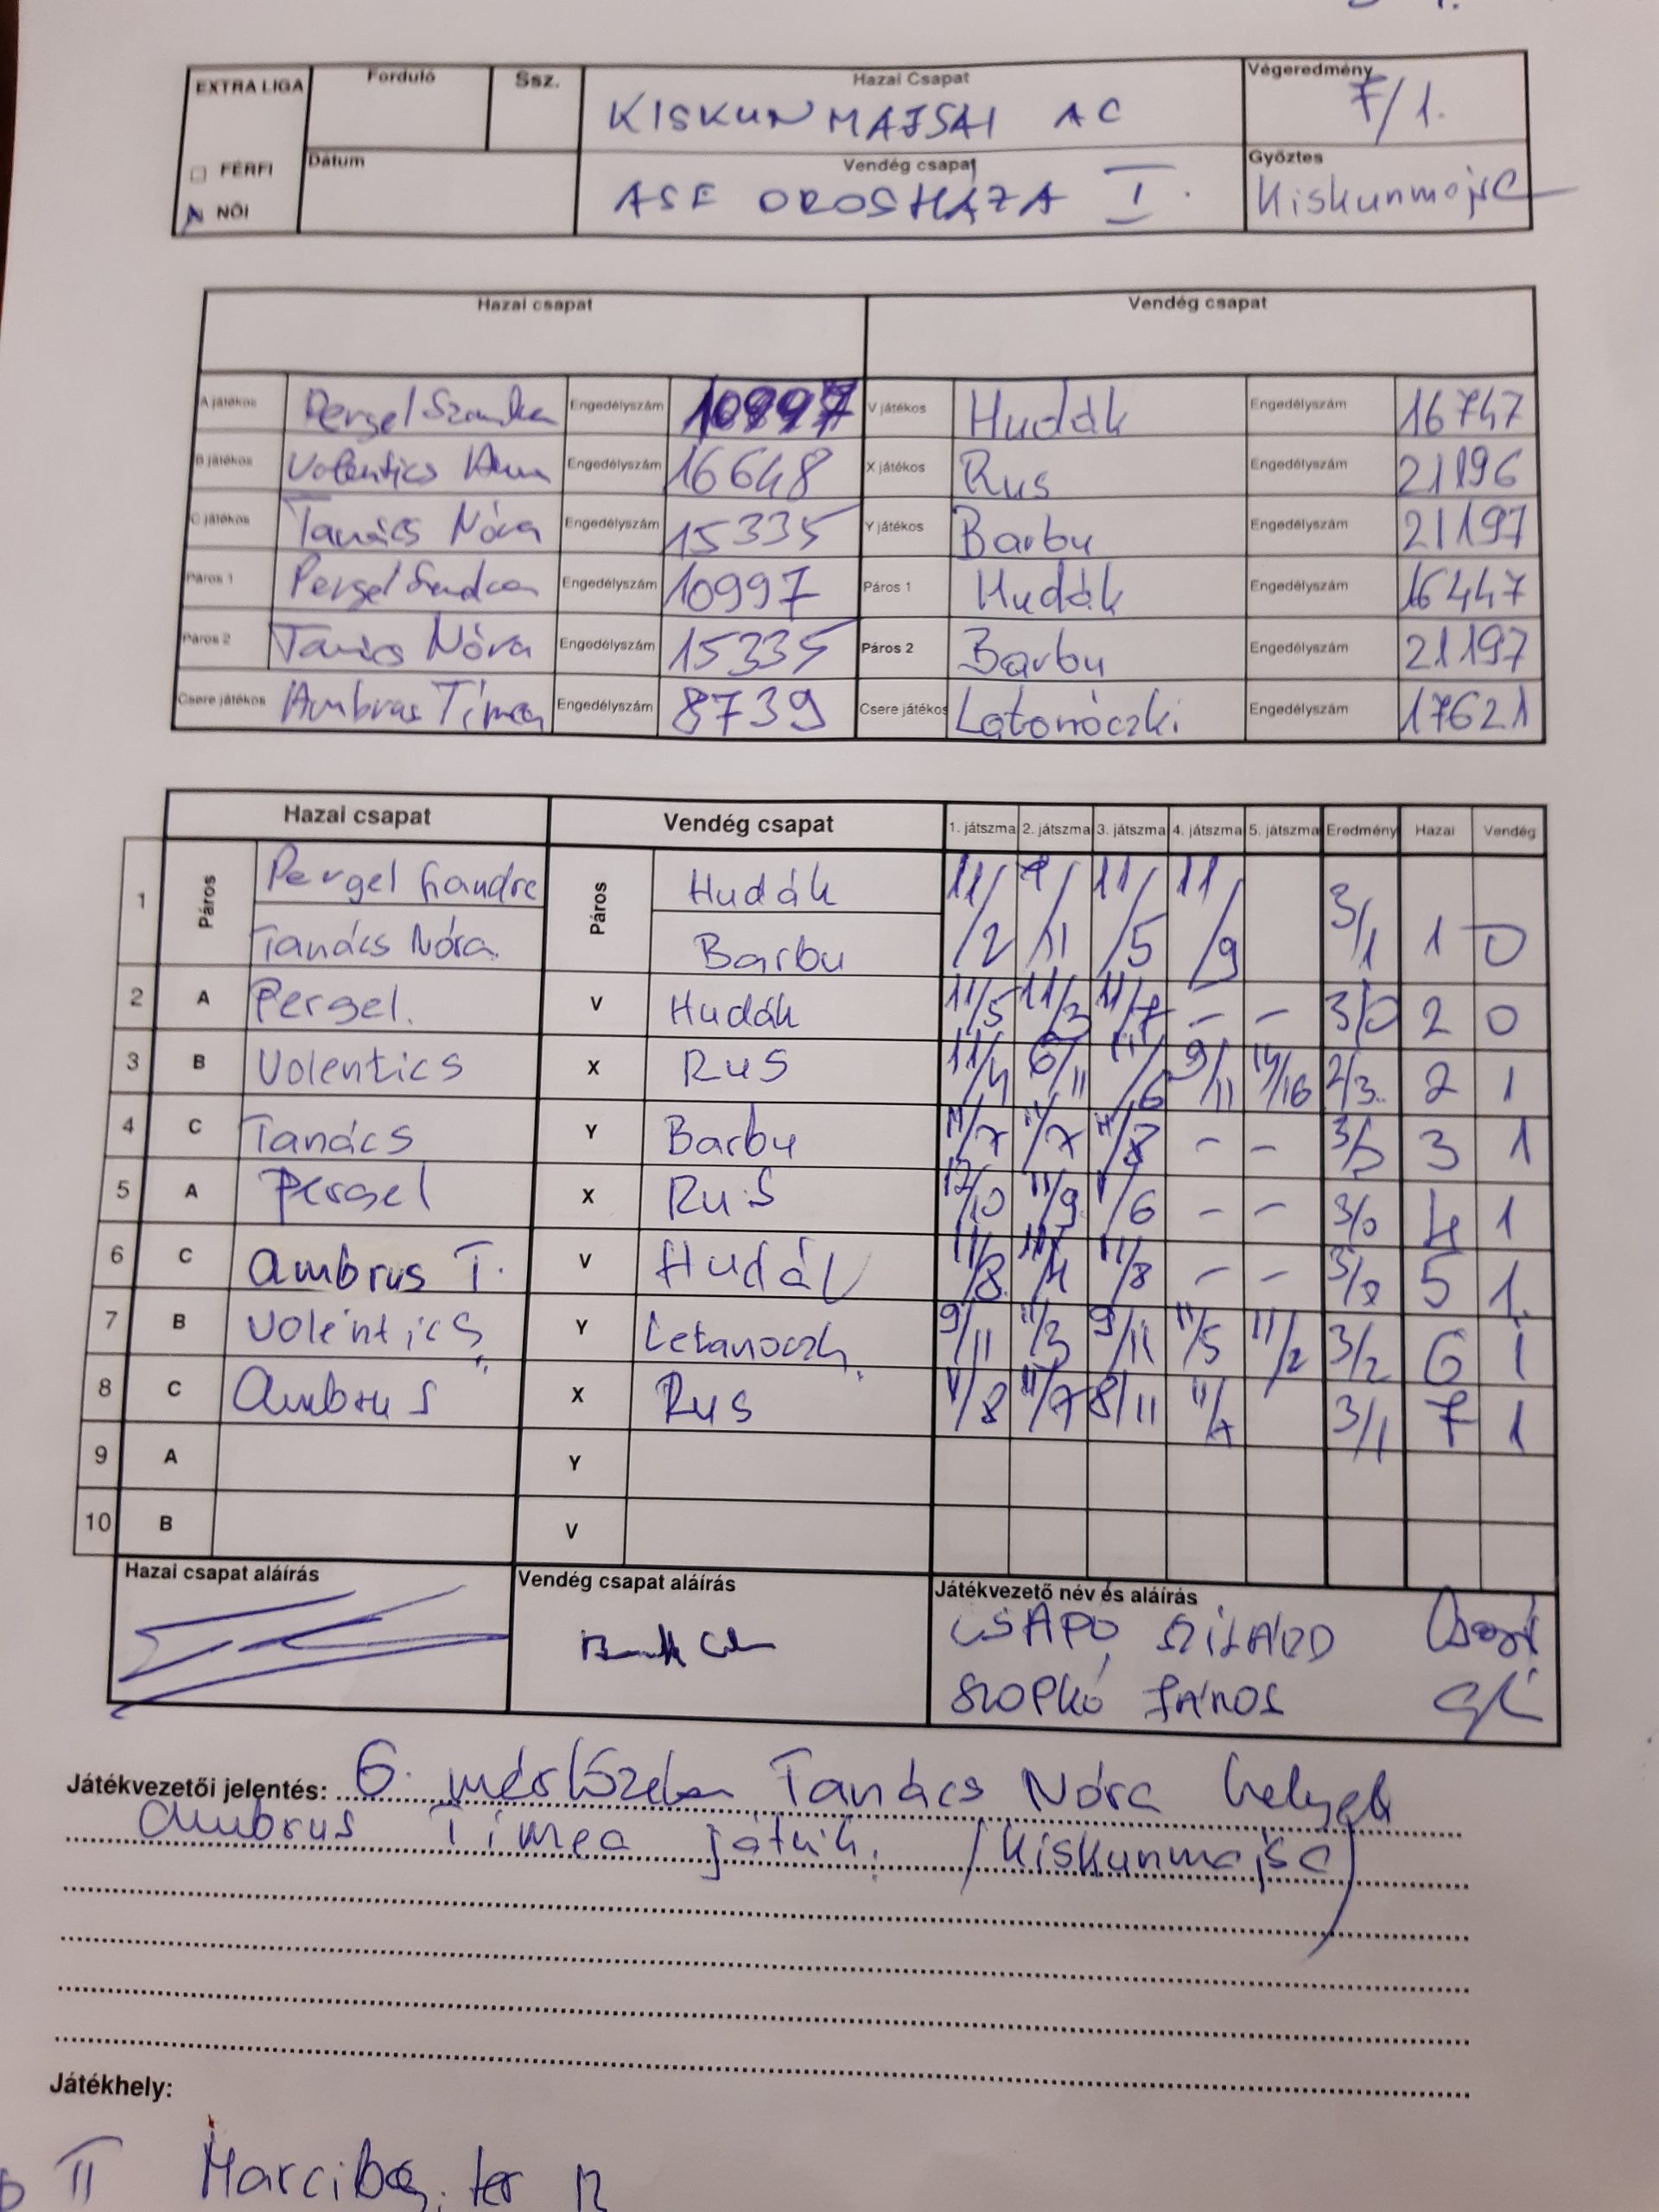 EXTRA LIGA Forduló Ssz. Hazai Csapat Végeredmény
KISKUNMAJSAI AC 7/1.
FÉRFI Dátum Vendég csapat Győztes
NŐI ASE OROSHÁZA I. Kiskunmajsa
Hazai csapat Vendég csapat
A játékos Pergel Szandra Engedélyszám 10997 V játékos Hudák Engedélyszám 16747
B játékos Volentics Anna Engedélyszám 16648 X játékos Rus Engedélyszám 21196
C játékos Tanács Nóra Engedélyszám 15335 Y játékos Barbu Engedélyszám 21197
Páros 1 Pergel Sandra Engedélyszám 10997 Páros 1 Hudák Engedélyszám 16447
Páros 2 Tanács Nóra Engedélyszám 15335 Páros 2 Barbu Engedélyszám 21197
Csere játékos Ambrus Tímea Engedélyszám 8739 Csere játékos Latonóczki Engedélyszám 17621
Hazai csapat Vendég csapat 1. játszma 2. játszma 3. játszma 4. játszma 5. játszma Eredmény Hazai Vendég
1 Páros Pergel Sandra Páros Hudák 11/2 7/11 11/5 11/9 3/1 1 0
Tanács Nóra Barbu
2 A Pergel. V Hudák 11/5 11/3 11/7 - - 3/0 2 0
3 B Volentics X Rus 11/4 6/11 11/6 9/11 14/16 2/3. 2 1
4 C Tanács Y Barbu 11/7 11/7 11/8 - - 3/0 3 1
5 A Pergel X Rus 12/10 11/9 11/6 - - 3/0 4 1
6 C Ambrus T. V Hudák 11/8 11/4 11/8 - - 3/0 5 1.
7 B Volentics Y Letanoczk. 9/11 11/3 9/11 11/5 11/2 3/2 6 1
8 C Ambrus X Rus 11/8 11/7 8/11 11/7 3/1 7 1
9 A Y
10 B V
Hazai csapat aláírás Vendég csapat aláírás Játékvezető név és aláírás
CSAPÓ SZILÁRD
SZOPKÓ JÁNOS
Játékvezetői jelentés: 6. mérkőzésben Tanács Nóra helyett
Ambrus Tímea játszik. /Kiskunmajsa/
Játékhely:
II Marcibá. tér